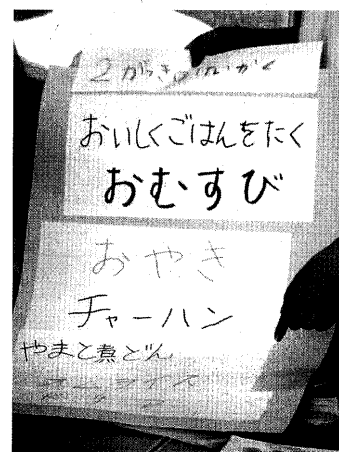 2がっきの
おいしくごはんをたく
おむすび
おやき
チャーハン
やまと煮どん